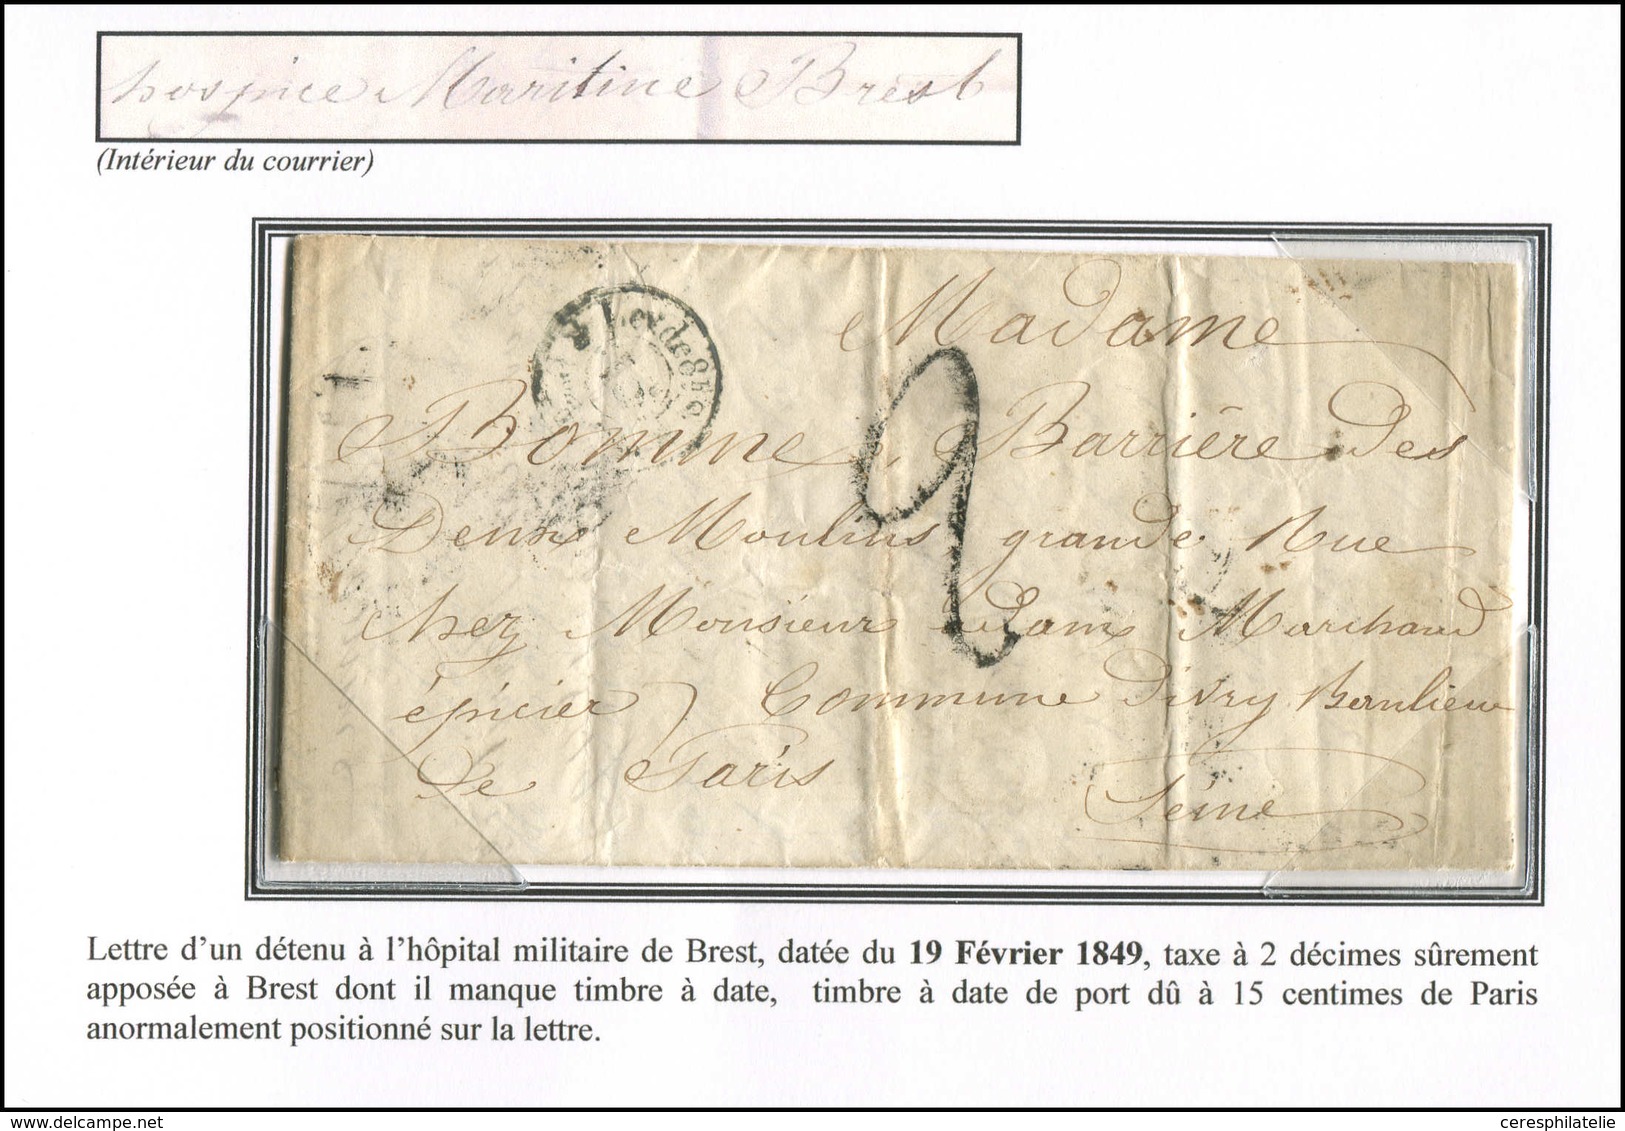 hospice Maritine Brest
(Intérieur du courrier)
Madame
Bomme, Barrière des
Deux Moulins grande Rue
chez Monsieur Marchand
épicier, Commune d'ivry Banlieue
De Paris
Seine
2
Lettre d'un détenu à l'hôpital militaire de Brest, datée du 19 Février 1849, taxe à 2 décimes sûrement
apposée à Brest dont il manque timbre à date, timbre à date de port dû à 15 centimes de Paris
anormalement positionné sur la lettre.
ceresphilatelie